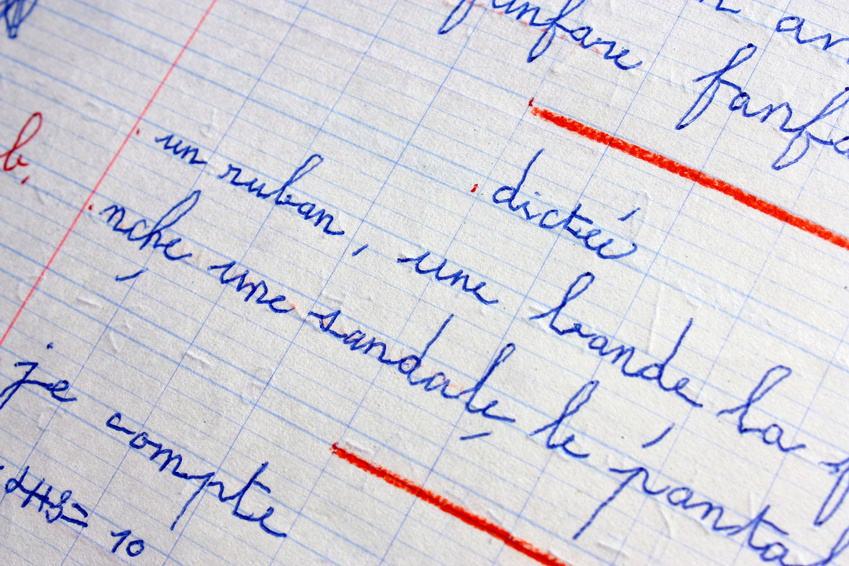 an
fanfare fanfa
dictée
b. un ruban, une bande, la
nche, une sandale, le panta
je compte
= 10